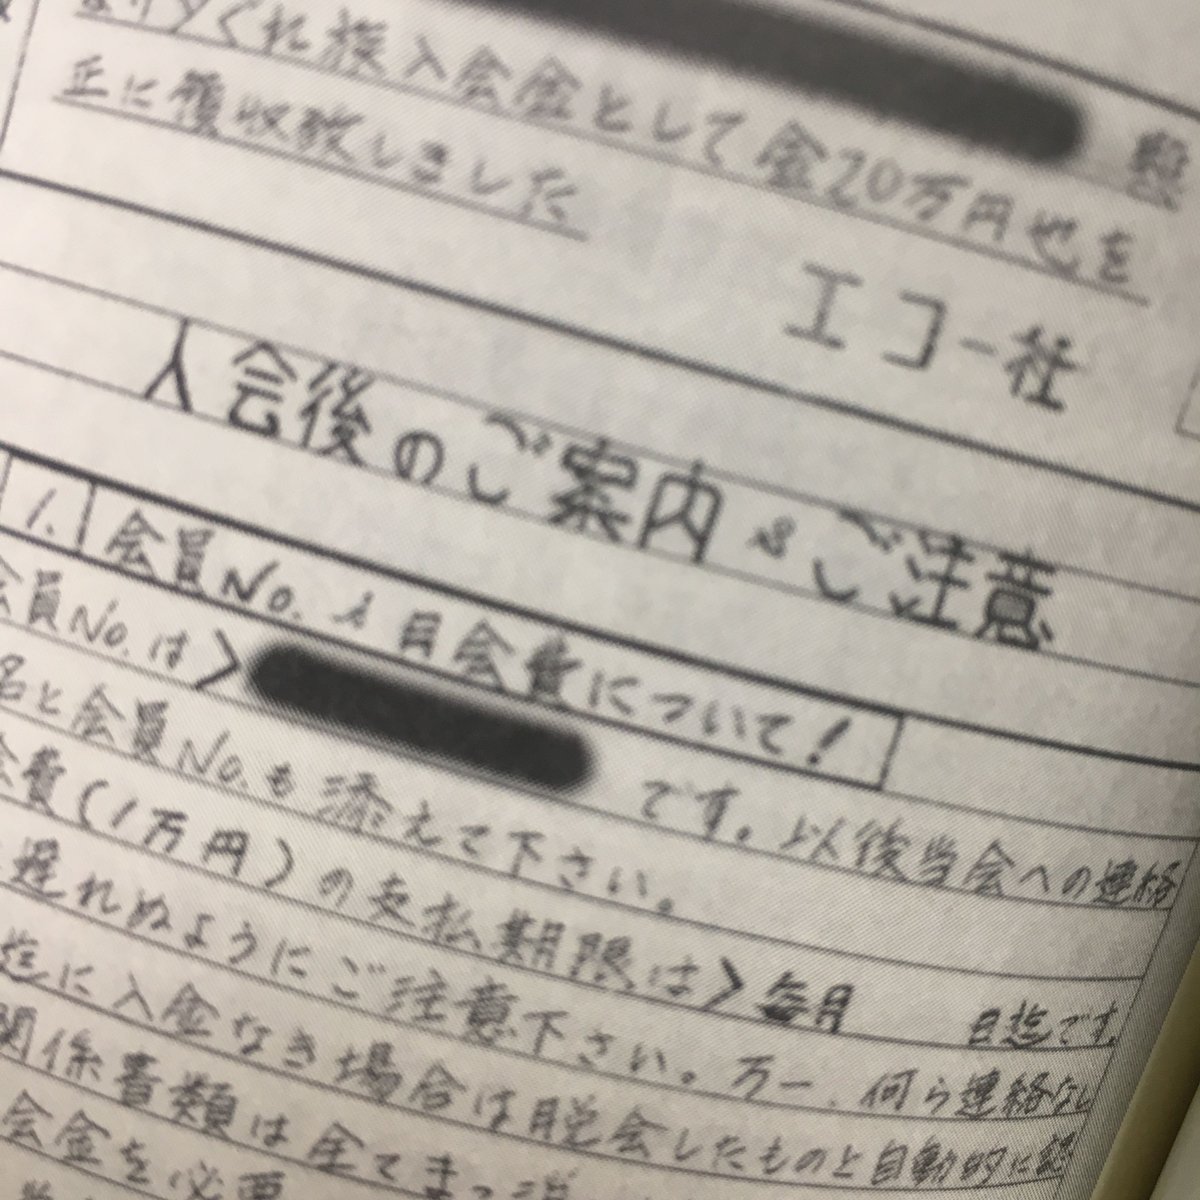 殿
夕ぐれ族入会金として金20万円也を
正に領収致しました
エコー社
入会後のご案内とご注意
1. 会員No.と月会費について!
会員No.は>
です。以後当会への連絡
名と会員No.も添えて下さい。
会費(1万円)の支払期限は>毎月 日迄です
遅れぬようにご注意下さい。万一、何ら連絡なし
迄に入金なき場合は脱会したものと自動的に認
関係書類は全てまっ
会金を必要